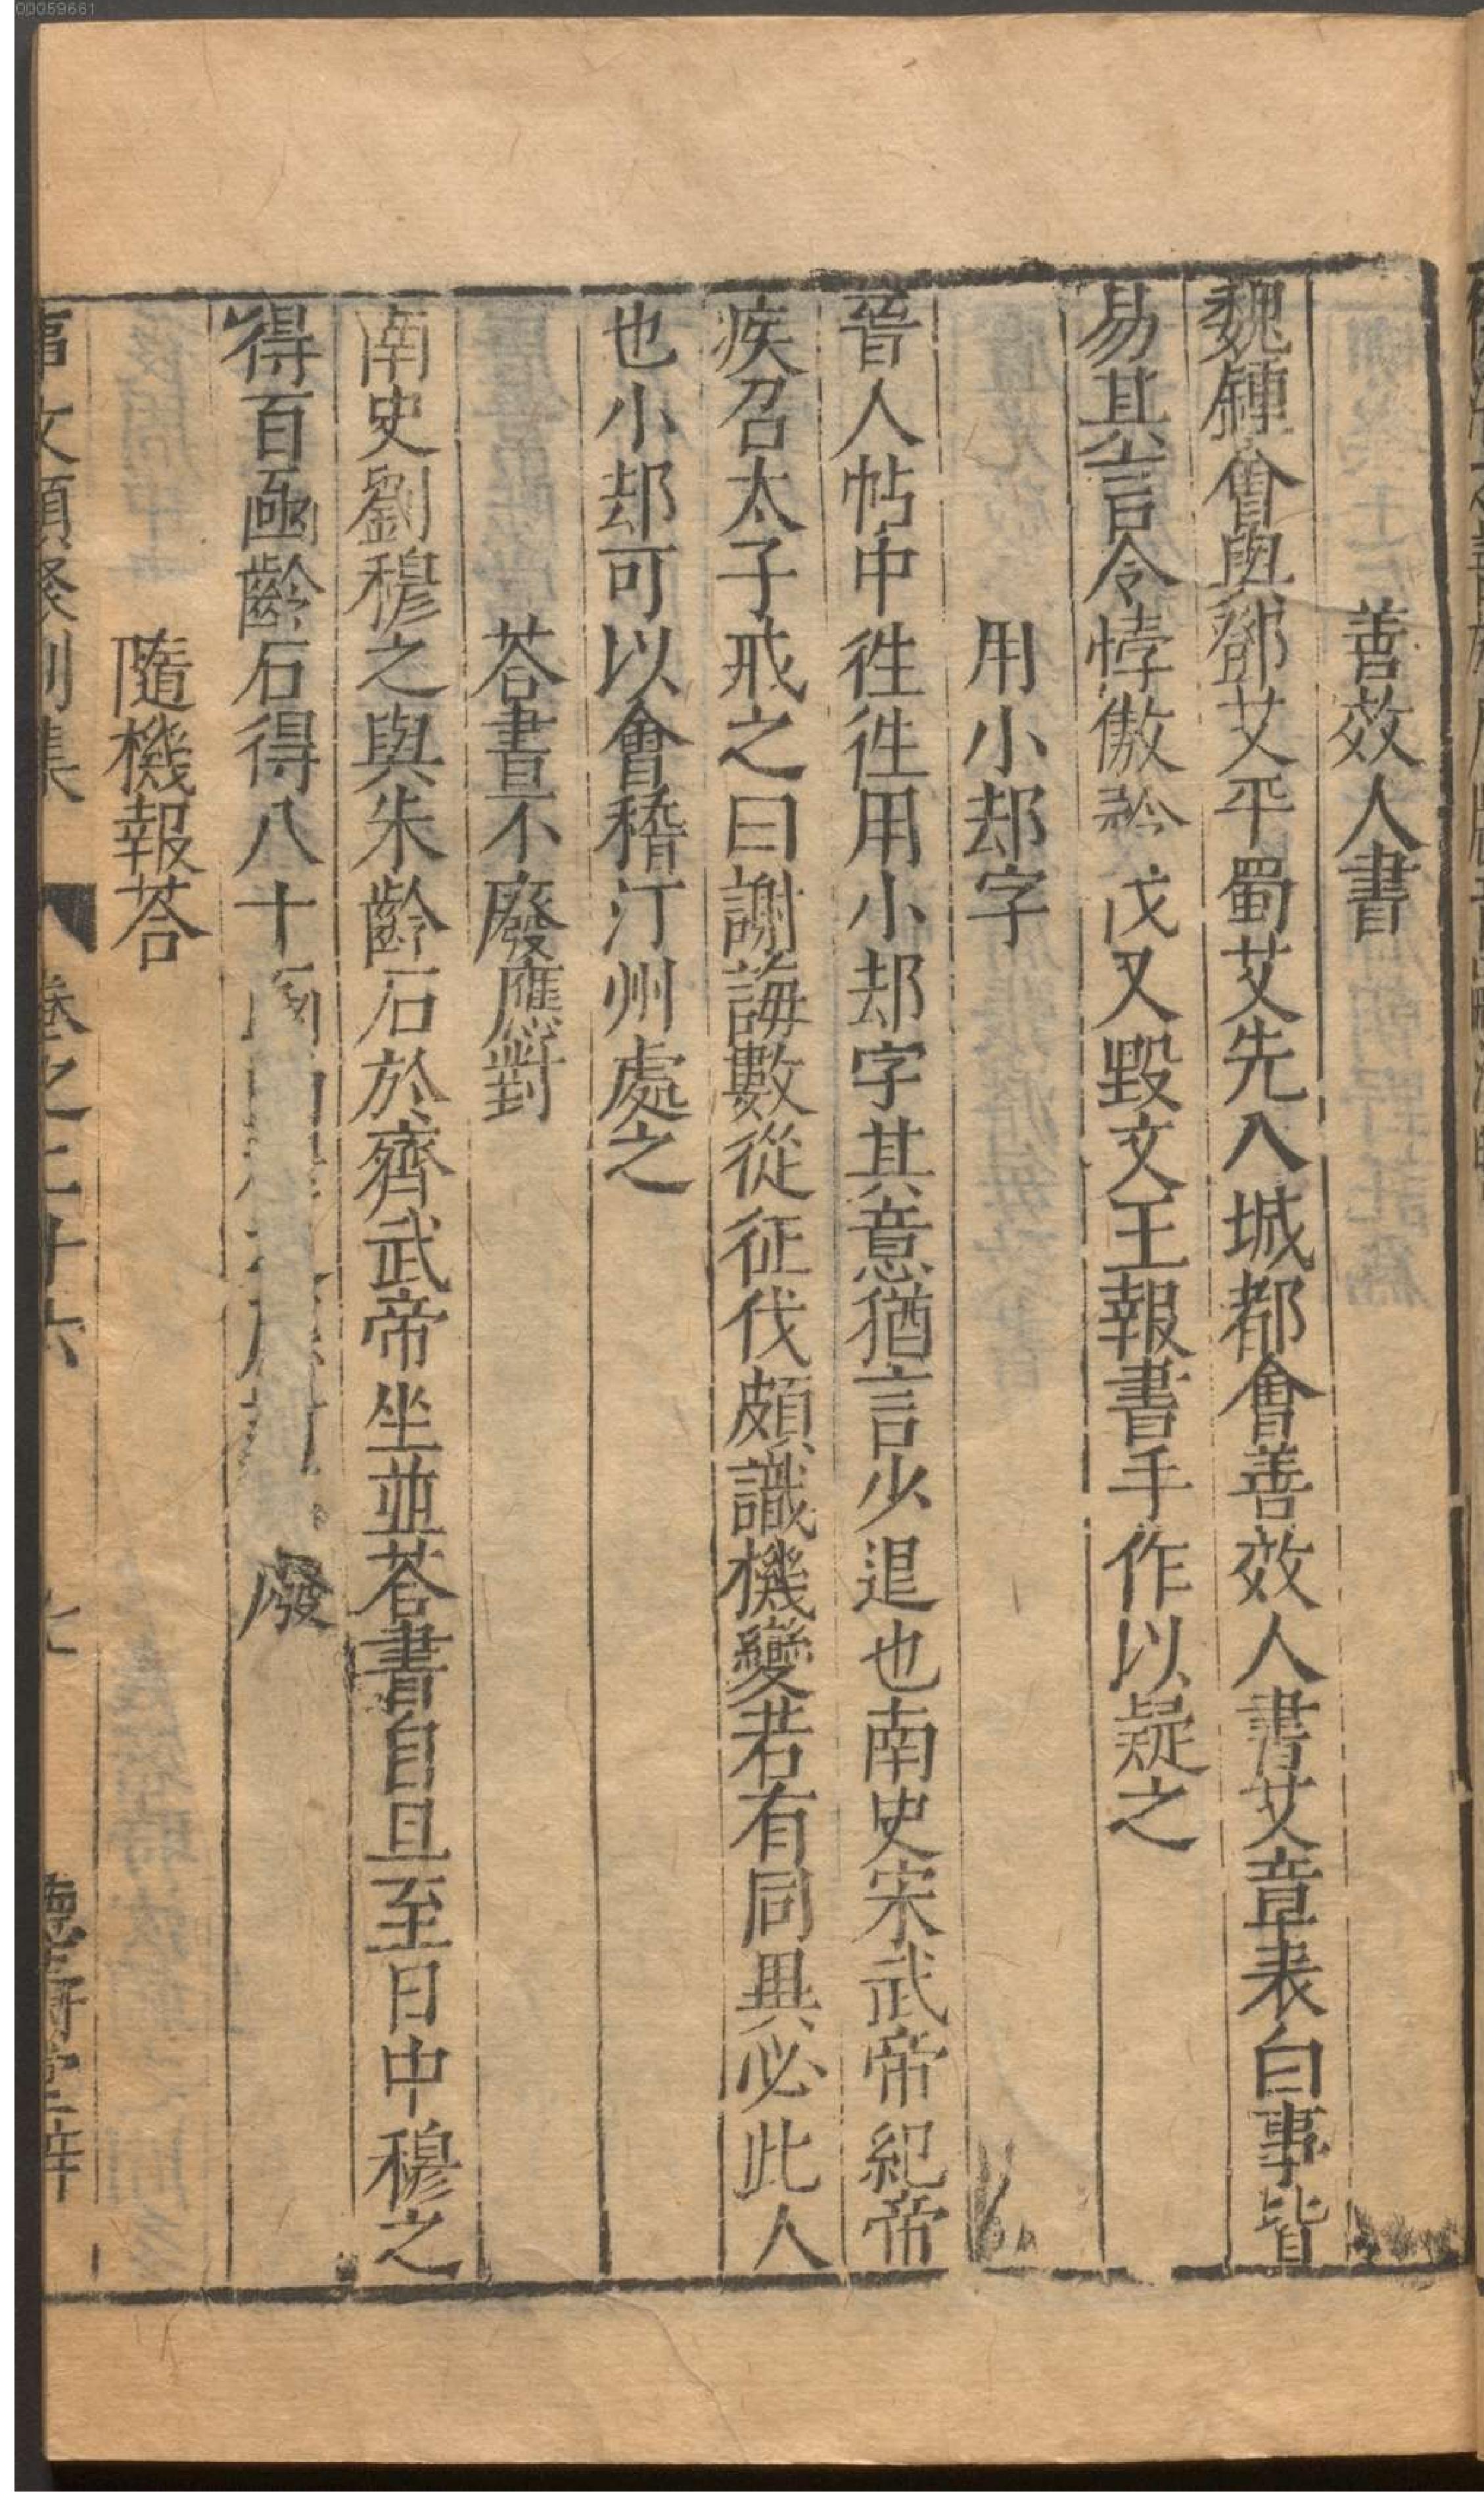 善效人書
魏鍾會與鄧艾平蜀艾先入城都會善效人書艾章表白事皆
易其言令悖傲矜伐又毀文王報書手作以疑之
用小却字
晉人帖中徃徃用小却字其意猶言少退也南史宋武帝紀帝
疾召太子戒之曰謝誨數從征伐頗識機變若有同異必此人
也小却可以會稽江州處之
荅書不廢應對
南史劉穆之與朱齡石於齊武帝坐並荅書自旦至日中穆之
得百函齡石得八十函 廢
隨機報荅
事文類聚別集 卷之二十六 七 德壽堂梓
00059661